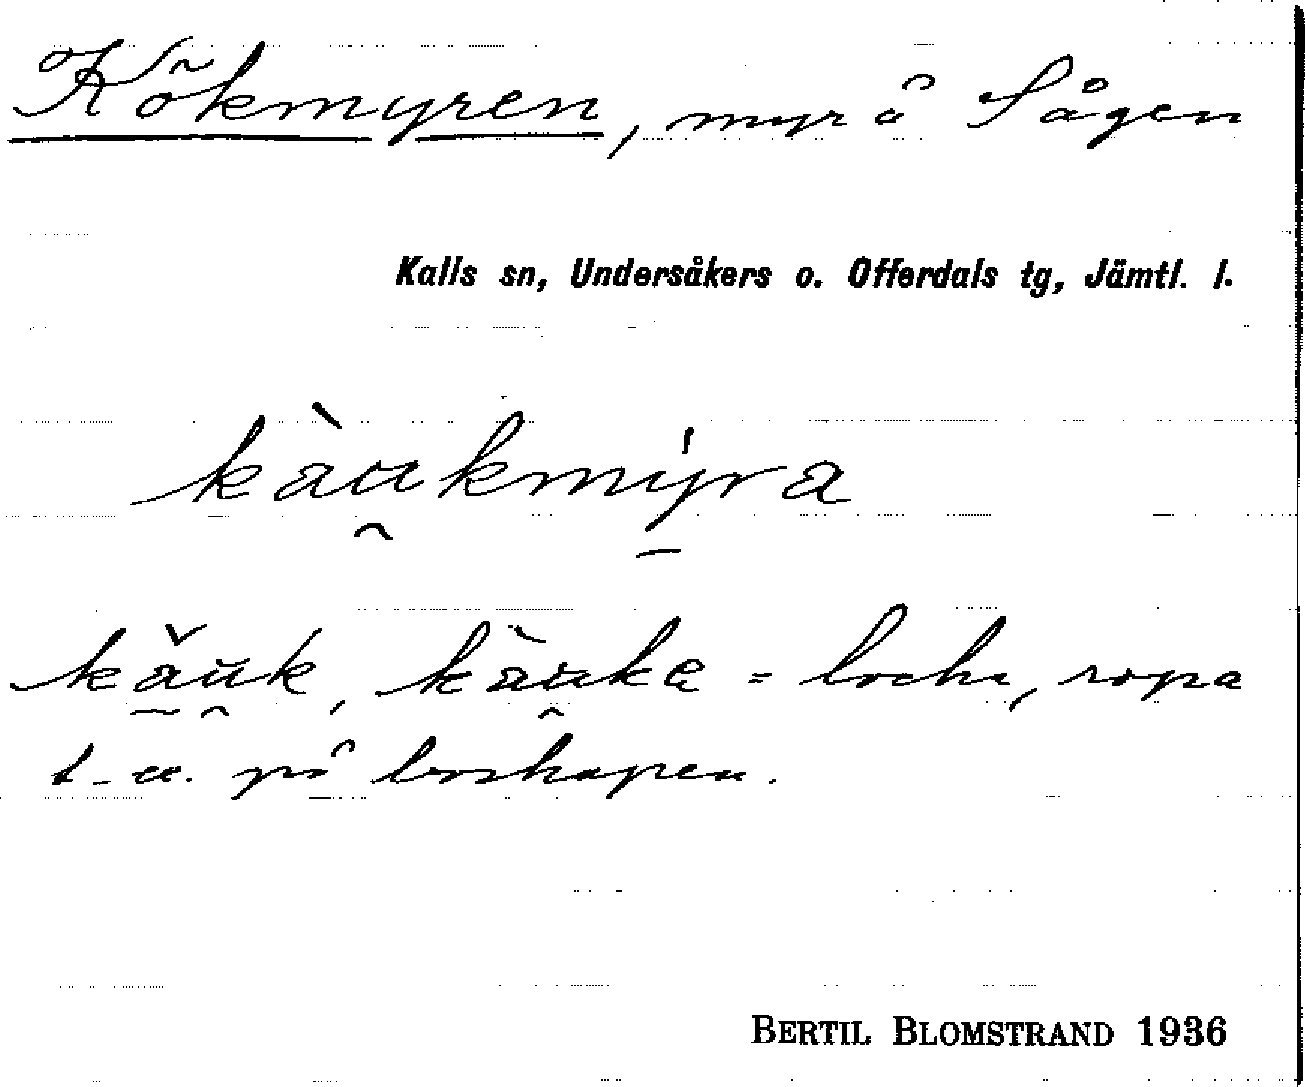 Kökmyren, myr å Sågen
Kalls sn, Undersåkers o. Offerdals tg, Jämtl. l.
kàu̯kmý̱ra
kǎuk, kàuka = locka, ropa
t. ex. på boskapen.
BERTIL BLOMSTRAND 1936